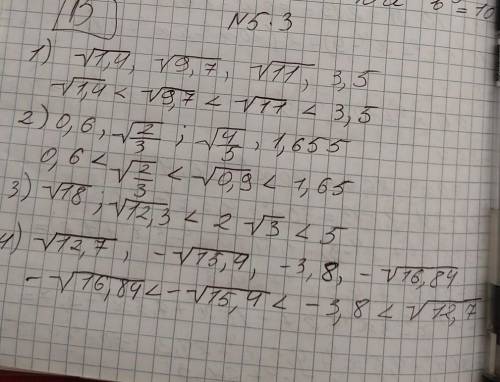 В
b = 10
№5.3
1) √1,4, √9,7, √11, 3,5
√1,4 < √9,7 < √11 < 3,5
2) 0,6, √2/3; √4/5, 1,655
0,6 < √2/3 < √0,9 < 1,65
3) √18; √12,3 < 2√3 < 5
4) √12,7, -√15,4, -3,8, -√16,84
-√16,84 < -√15,4 < -3,8 < √12,7